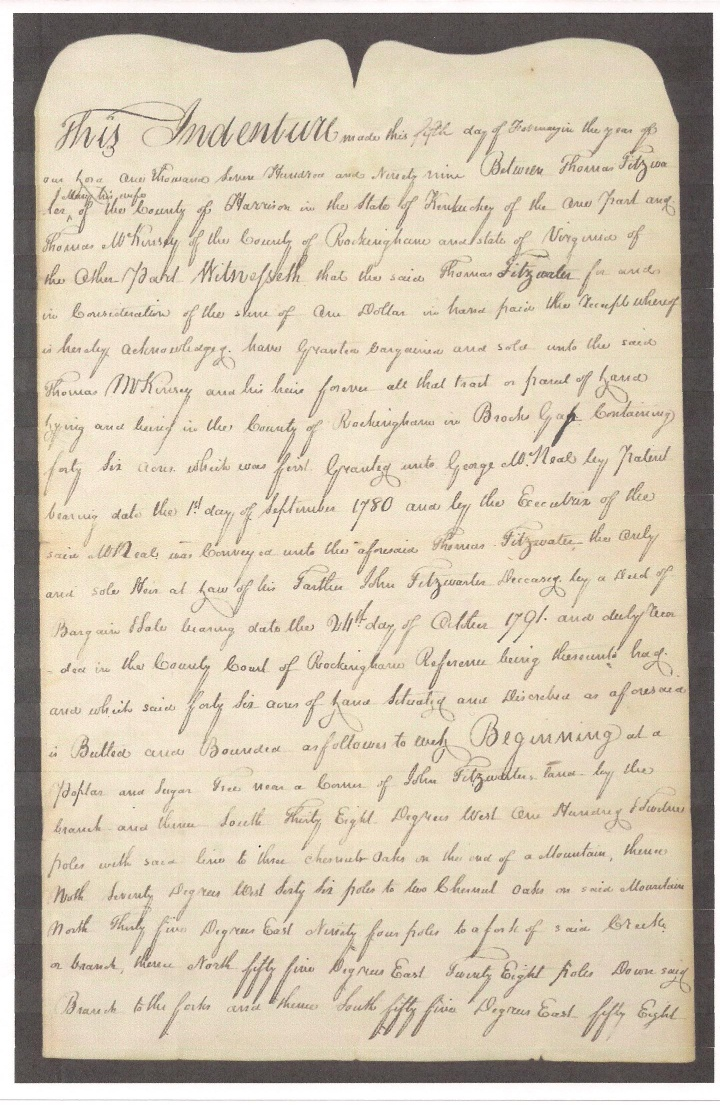 This Indenture made this fifth day of Febuary in the year of
our Lord One thousand Seven Hundred and Ninety nine Between Thomas Fitzwa
& Mary his wife
ter, of the County of Harrison in the State of Kentuckey of the One Part and
Thomas McKinsey of the County of Rockingham and state of Virginia of
the Other Part Witnesseth that the said Thomas Fitzwater for and
in Consideration of the sum of One Dollar in hand paid the Receipt whereof
is hereby acknowledged. have Granted bargained and sold unto the said
Thomas McKinsey and his heirs forever all that tract or parcel of Land
Lying and being in the County of Rockingham in Brocks Gap Containing
forty Six acres which was first Granted unto George McNeal by Patent
bearing date the 1st day of September 1780 and by the Executrix of the
said McNeal was Conveyed unto the aforesaid Thomas Fitzwater the Only
and sole Heir at Law of his Farther John Fitzwarter Deceased by a Deed of
Bargain & Sale bearing date the 24th day of October 1791. and duly Recor
-ded in the County Court of Rockingham Reference being thereunto had.
and which said forty Six acres of Land Situated and Discribed as aforesaid
is Butted and Bounded as followes to wit, Beginning at a
Poplar and Sugar Tree near a Corner of John Fitzwarters Land by the
branch and thence South Thirty Eight Degrees West One Hundred &
poles with said line to three chesnut Oaks on the end of a Mountain, thence
North Seventy Degrees West Sixty Six poles to two Chesnut oaks on said Mountain
North Thirty five Degrees East Ninety four poles to a fork of said Creek
or branch, thence North fifty five Degrees East Twenty Eight poles Down said
Branch to the forks and thence South fifty five Degrees East fifty Eight